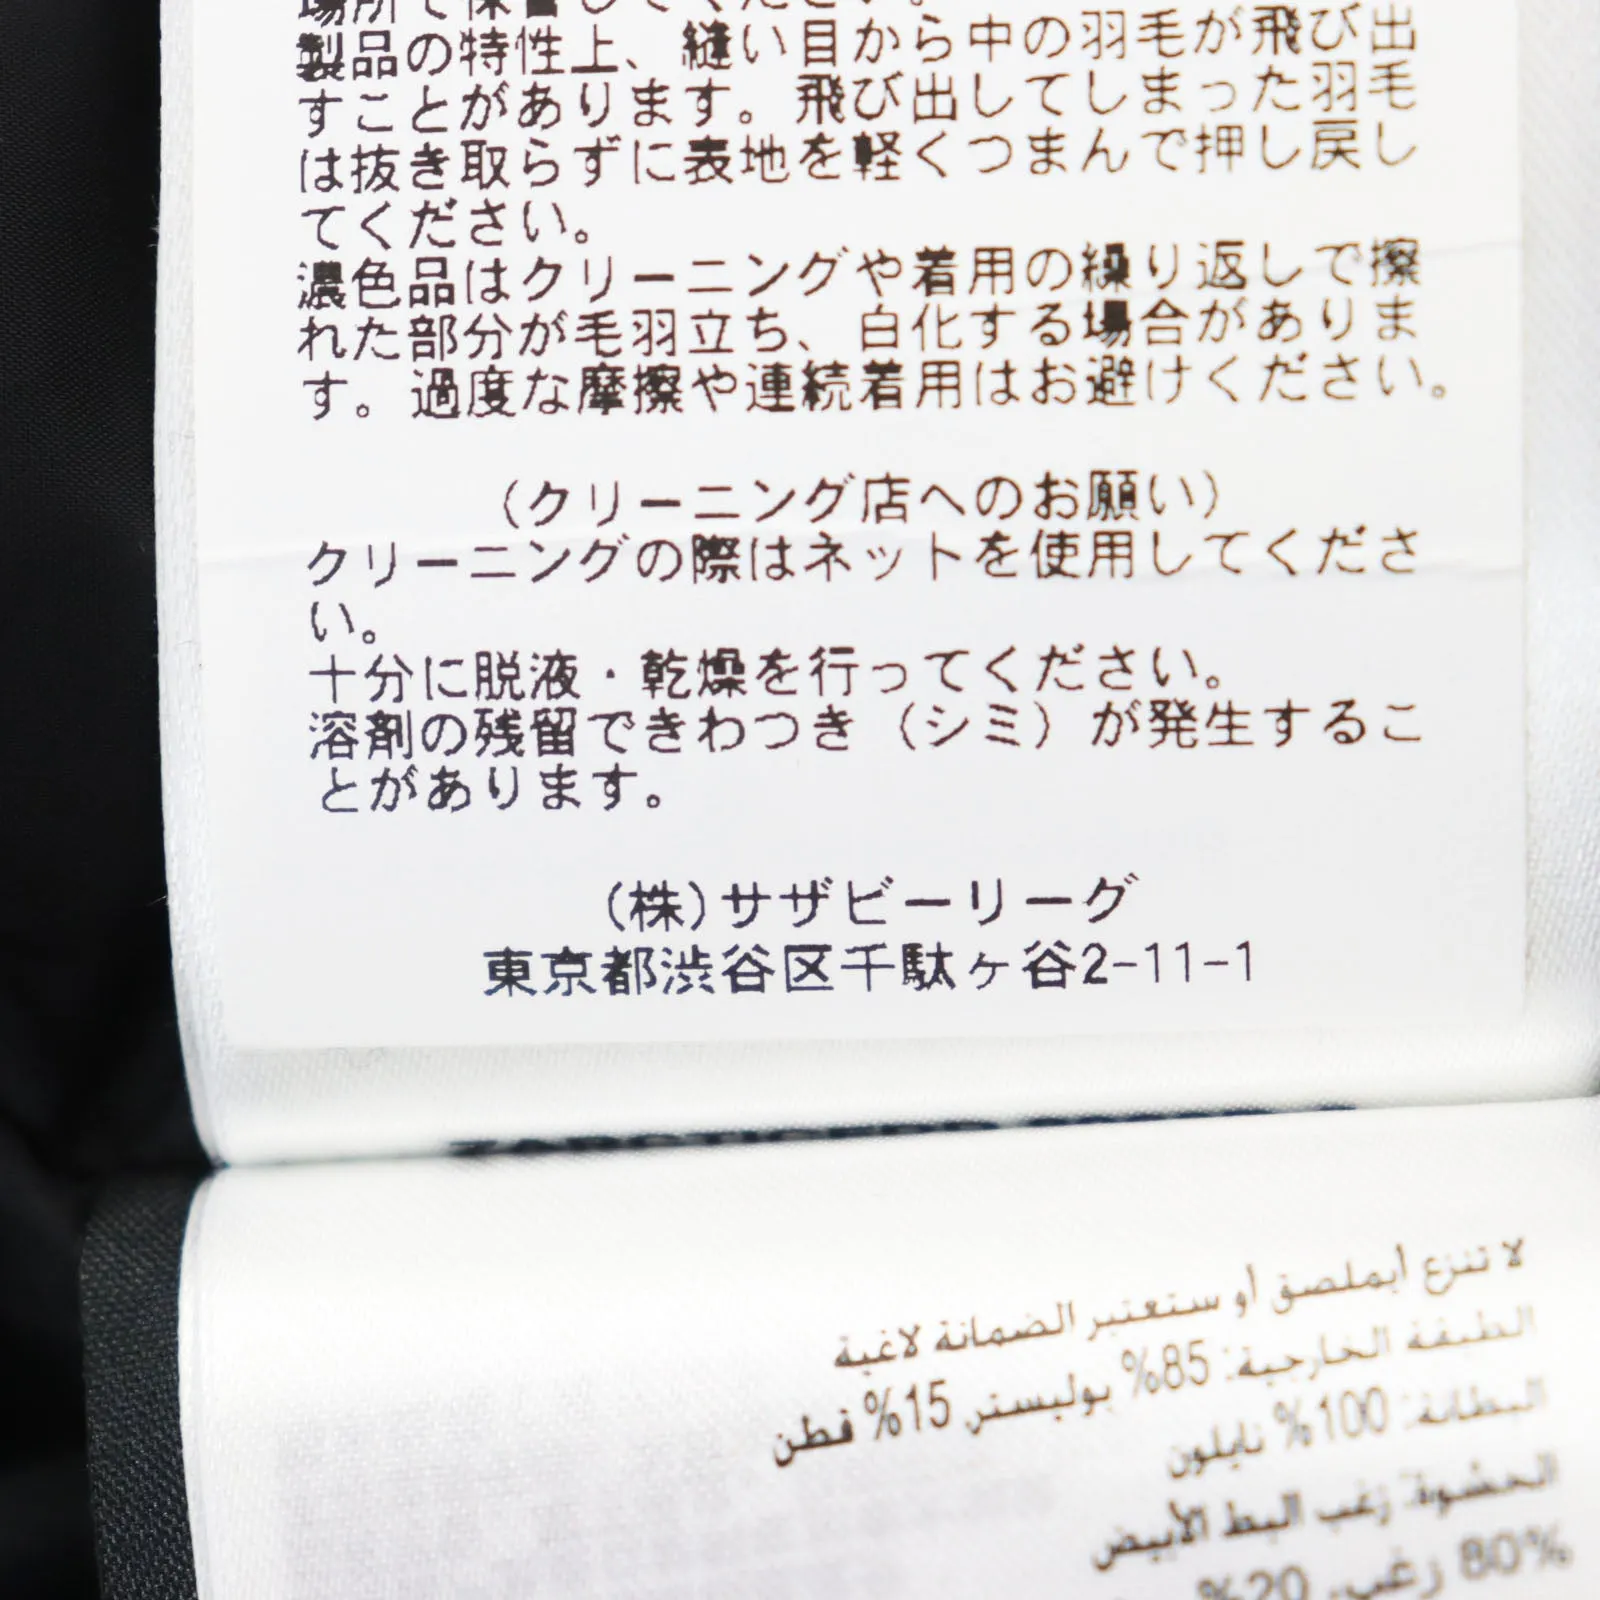 場所で保管してください。
製品の特性上、縫い目から中の羽毛が飛び出
すことがあります。飛び出してしまった羽毛
は抜き取らずに表地を軽くつまんで押し戻し
てください。
濃色品はクリーニングや着用の繰り返しで擦
れた部分が毛羽立ち、白化する場合がありま
す。過度な摩擦や連続着用はお避けください。
(クリーニング店へのお願い)
クリーニングの際はネットを使用してくださ
い。
十分に脱液・乾燥を行ってください。
溶剤の残留できわつき（シミ）が発生するこ
とがあります。
(株)サザビーリーグ
東京都渋谷区千駄ヶ谷2-11-1
لا تنزع أيملصق أو ستعتبر الضمانة لاغية
الطبقة الخارجية: 85% بوليستر 15% قطن
البطانة: 100% نايلون
الحشوة: زغب البط الأبيض
80% زغب، 20%